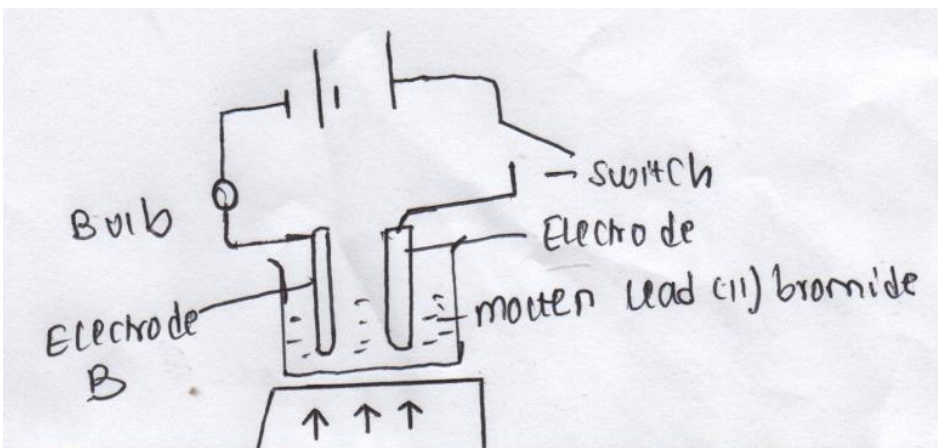 switch
Bulb
Electrode
molten lead (II) bromide
Electrode
B